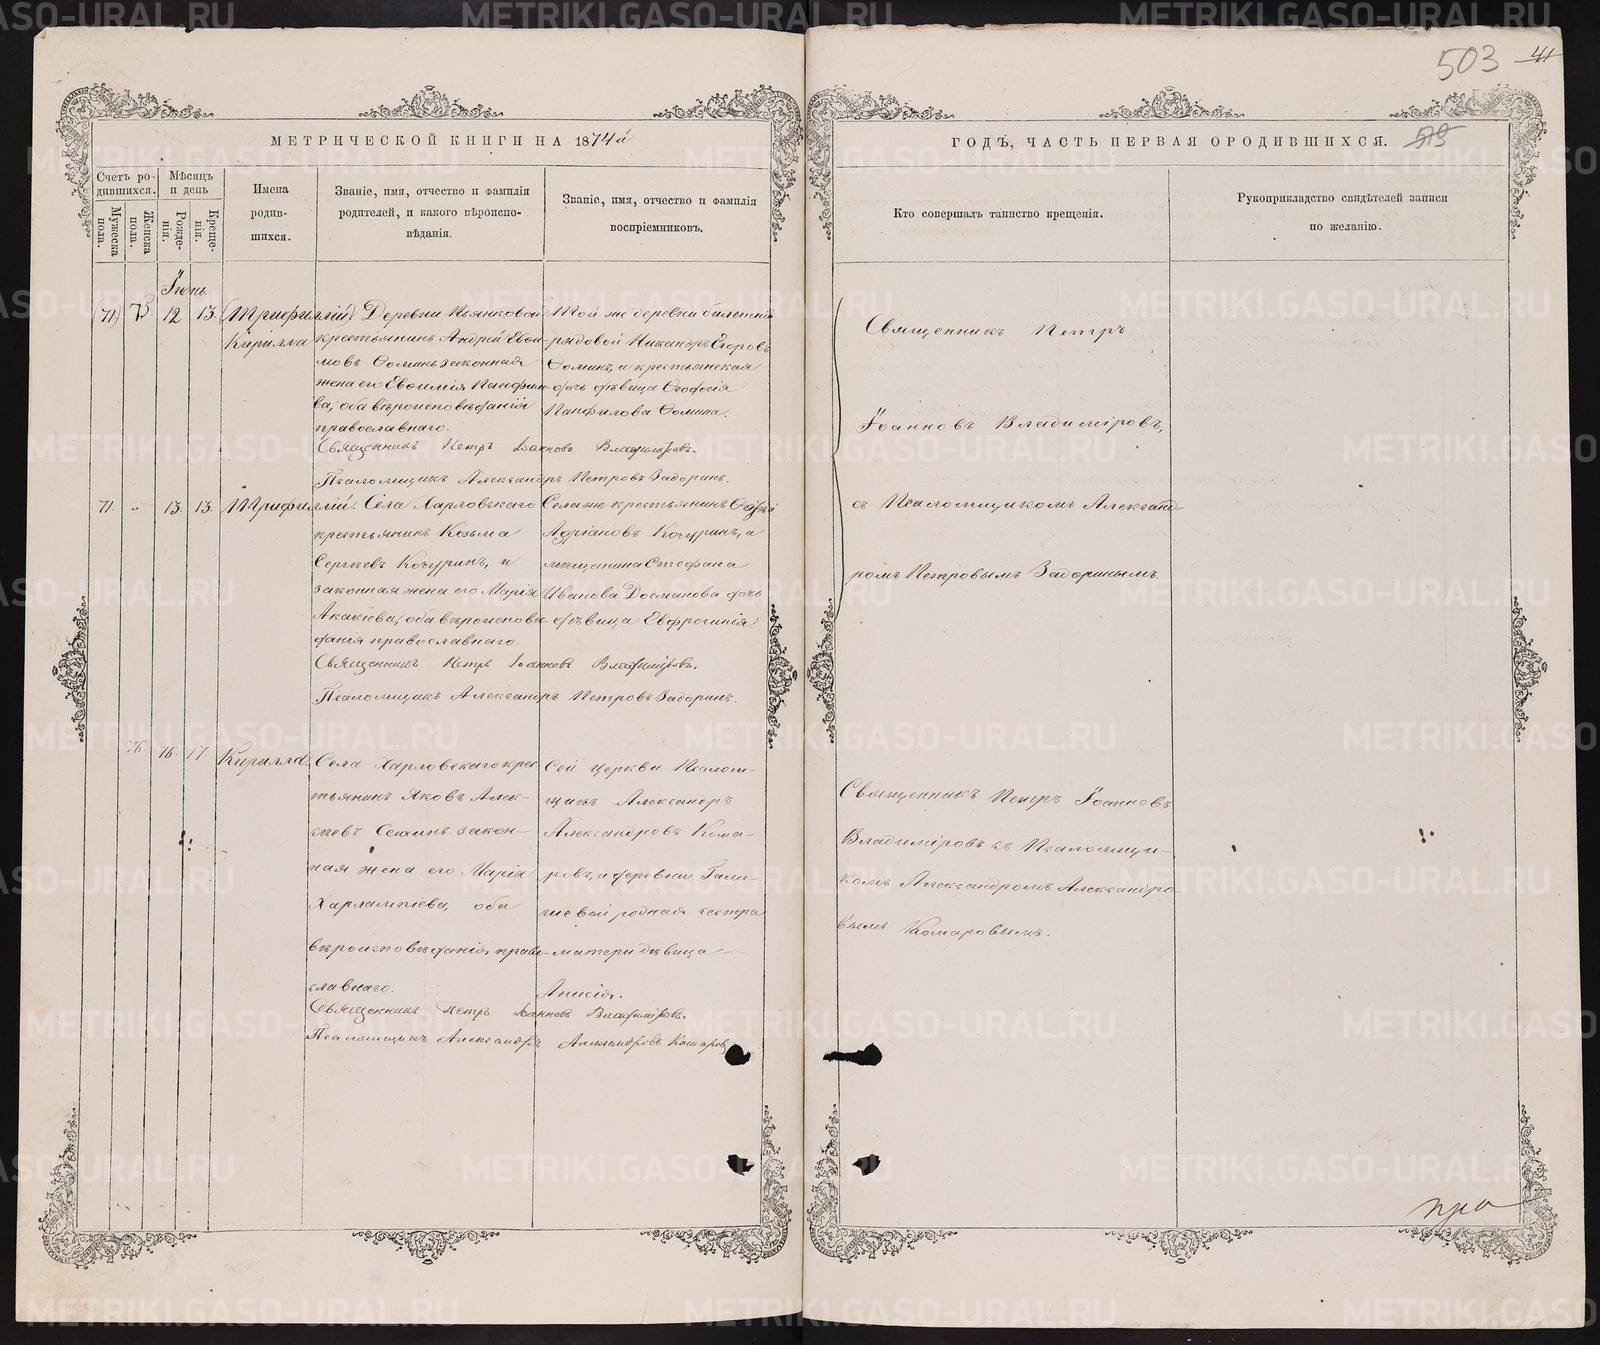 503
МЕТРИЧЕСКОЙ КНИГИ НА 1874й
ГОДЪ, ЧАСТЬ ПЕРВАЯ О РОДИВШИХСЯ.
Счетъ ро-
дившихся.
Мужеска пола.
Женска пола.
Мѣсяцъ
и день
Рожде-
нія.
Креще-
нія.
Имена
родив-
шихся.
Званіе, имя, отчество и фамилія
родителей, и какого вѣроиспо-
вѣданія.
Званіе, имя, отчество и фамилія
воспріемниковъ.
Кто совершалъ таинство крещенія.
Рукоприкладство свидѣтелей записи
по желанію.
Іюнь.
(71) 75 12 13
(Трифиллій)
Кирилла
Деревни
крестьянинъ Андрей Евѳи-
мовъ Ѳоминъ законная
жена его Евѳимія Панфило-
ва, оба вѣроисповѣданія
православнаго.
Той же деревни билетный
рядовой Никаноръ Егоровъ
Ѳоминъ, и крестьянская
дочь дѣвица Ѳеодосія
Панфилова Ѳомина.
Священникъ Петръ Іоанновъ Владиміровъ.
Псаломщикъ Александръ Петровъ Задоринъ.
71. - 13. 13.
Трифиллій.
Села Харловскаго
крестьянинъ Козьма
Сергѣевъ Кочуринъ, и
законная жена его Марія
Акакіева, оба вѣроисповѣ-
данія православнаго.
Села же крестьянинъ
Адріановъ Кочуринъ, и
мѣщанина Стефана
Иванова Досманова дочь
дѣвица Евфросинія.
Священникъ Петръ Іоанновъ Владиміровъ.
Псаломщикъ Александръ Петровъ Задоринъ.
Священникъ Петръ
Іоанновъ Владиміровъ,
съ Псаломщикомъ Александ-
ромъ Петровымъ Задоринымъ.
76 16. 17
Кирилла.
Села Харловскаго крес-
тьянинъ Яковъ Алек-
сѣевъ законная
жена его Марія
Харлампіева, оба
вѣроисповѣданія право-
славнаго.
Сей церкви Псалом-
щикъ Александръ
Александровъ Кома-
ровъ, и деревни Гали-
шевой родная сестра
матери дѣвица
Анисія.
Священникъ Петръ Іоанновъ Владиміровъ.
Псаломщикъ Александръ Александровъ Комаровъ
Священникъ Петръ Іоанновъ
Владиміровъ съ Псаломщи-
комъ Александромъ Александро-
вымъ Комаровымъ.
METRIKI.GASO-URAL.RU